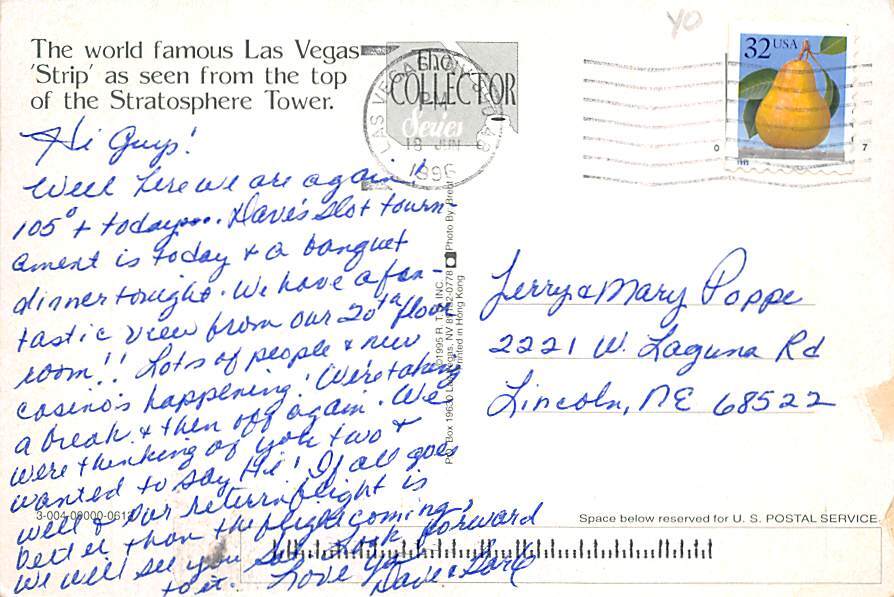 The world famous Las Vegas
'Strip' as seen from the top
of the Stratosphere Tower.
the
COLLECTOR
Series
LAS VEGAS
PM
18 JUN
1996
32 USA
YO
Hi Guys!
Well here we are again!!
105° + today.... Dave's slot tourn-
ament is today & a banquet
dinner tonight. We have a fan-
tastic view from our 20th floor
room!! Lots of people & new
casino's happening! We're taking
a break & then off again. We
were thinking of you two &
wanted to say Hi! If all goes
well & our return flight is
better than the flight coming,
we will see you Look forward
to it. Love ya
Dave &
©1995 R. T. INC.
P.O. Box 19630 Las Vegas, NV 89132-0778
Printed in Hong Kong
Photo By:
Jerry & Mary Poppe
2221 W. Laguna Rd
Lincoln, NE 68522
3-004-09000-0613
Space below reserved for U. S. POSTAL SERVICE